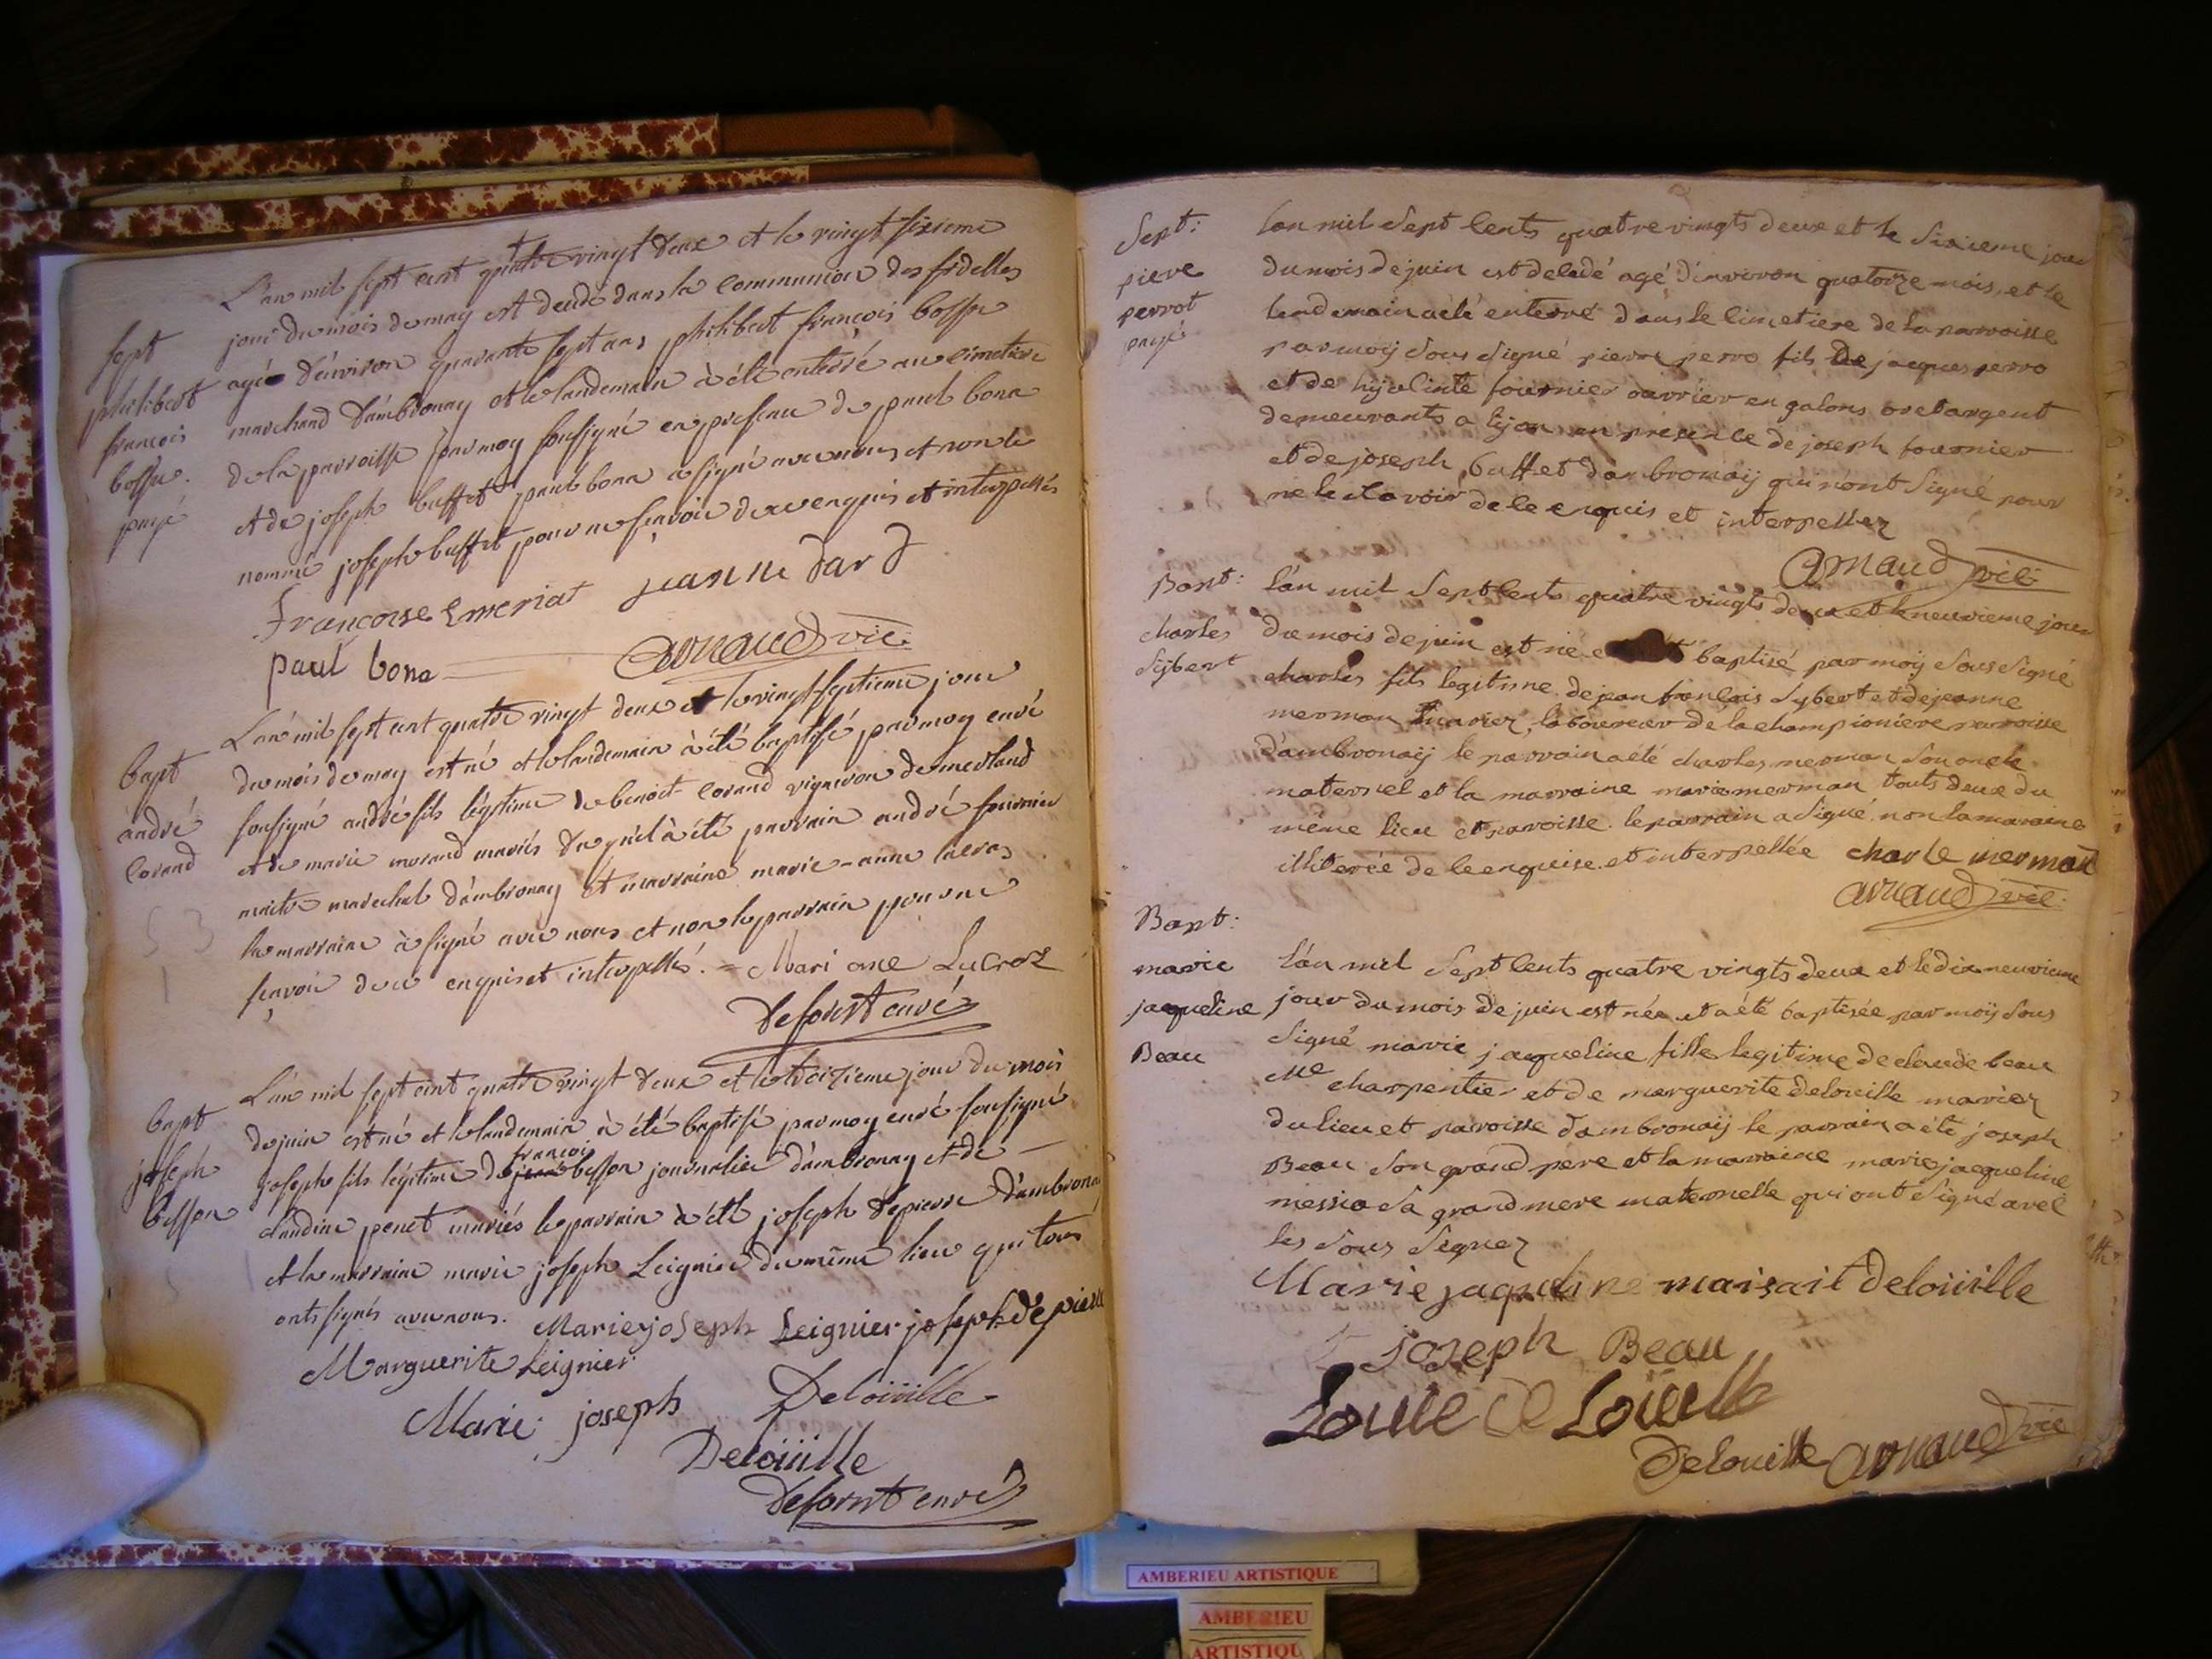 L'an mil sept cent quatre vingt deux et le vingt sixieme
jour du mois de may est decedé dans la communion des fidelles
agé d'environ quarante sept ans philibert françois bossu
marchand d'ambronay et le landemain à été enterré au cimetiere
de la parroisse par moy soussigné en presence de paul bona
et de joseph buffet paul bona a signé avec nous et non le
nommé joseph buffet pour ne sçavoir de ce enquis et interpellés
sept
philibert
francois
bossu.
payé
Francoise Emeriat jeanne dard
paul bona arnaud vic:
L'an mil sept cent quatre vingt deux et le vingt septieme jour
du mois de may est né et le landemain à été baptisé par moy curé
soussigné andré fils légitime de benoit Corand vigneron de merland
et de marie morand mariés duquel à été parrain andré fournier
maitre marechal d'ambronay et marraine marie-anne lacras
la marraine à signé avec nous et non le parrain pour ne
sçavoir de ce enquis et interpellés. = Mari ane LuCroz
bapt
andré
Corand
Defornt curé
L'an mil sept cent quatre vingt deux et le treizieme jour du mois
de juin est né et le landemain à été baptisé par moy curé soussigné
françois
joseph fils légitime de jean besson journalier d'ambronay et de
claudine penet mariés le parrain à été joseph depierre d'ambronay
et la marraine marie joseph Leignier du même lieu qui tous
onts signés avec nous. Marie joseph Leignier joseph depierre
bapt
joseph
besson
Marguerite Leignier
Marie joseph Deloüille
Deloüille
Defornt curé
Sept:
piere
perrot
payé
lan mil Sept Cents quatre vingts deux et le Sixieme jour
du mois de juin est decedé agé d'environ quatorze mois et le
lendemain a été enterré dans le cimetiere de la parroisse
par moij Sous Signé pierre perro fils de jacques perro
et de hijacinte fournier ouvrier en galons or et argent
demeurants a lijon en présence de joseph fournier
et de joseph buffet d'ambronaij qui n'ont Signé pour
ne le Scavoir de ce enquis et interpellez
arnaud vic:
Bapt:
charles
Sijbert
l'an mil Sept Cents quatre vingts deux et le neuvieme jour
du mois de juin est né e baptisé par moij Sous Signé
charles fils legitime de jean francois Sybert et de jeanne
merman mariez, laboureur de la championiere parroisse
d'ambronaij le parrain a été charles merman Son oncle
maternel et la marraine marie merman touts deux du
même lieu et paroisse. le parrain a Signé non la maraine
illiterée de ce enquise et interpellée charle mermant
arnaud vic:
Bapt:
marie
jaqueline
Beau
l'an mil Sept Cents quatre vingts deux et le dix neuvieme
jour du mois de juin est née et a été baptisée par moij Sous
Signé marie jaqueline fille legitime de claude beau
Me charpentier et de marguerite delouille mariez
du lieu et paroisse d'ambronaij le parrain a été joseph
Beau Son grand pere et la marraine marie jacqueline
messia Sa grand mere maternelle qui ont Signé avec
les Sous Signez
Marie jaqueline maisait Deloüille
joseph Beau
Louise de Loüille
Delouille arnaud vic
AMBERIEU ARTISTIQUE
AMBERIEU
ARTISTIQU